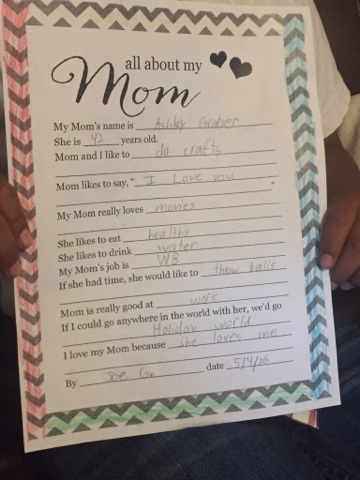 all about my
Mom
My Mom's name is Ashley Graber
She is 42 years old.
Mom and I like to do crafts
Mom likes to say, " I Love you
"
My Mom really loves movies
She likes to eat healthy
She likes to drink water
My Mom's job is WB
If she had time, she would like to throw balls
Mom is really good at work
If I could go anywhere in the world with her, we'd go
Holiday world
I love my Mom because she loves me
By Joe G. date 5/4/16